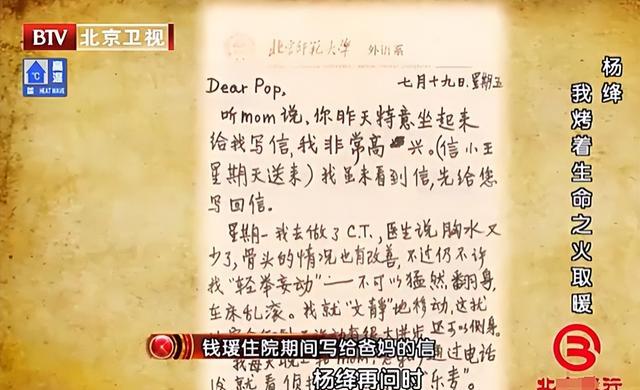 BTV 北京卫视
高温
HEAT WAVE
北京师范大学 外语系
Dear Pop,
七月十九日.星期五
听mom说,你昨天特意坐起来
给我写信,我非常高兴。(信小王
星期天送来)我虽未看到信,先给您
写回信。
星期一我去做了C.T.,医生说胸水又
少了,骨头的情况也有改善,不过仍不许
我"轻举妄动"——不可以猛然翻身,
在床乱滚。我就"文静"地移动,这我
还可以侧身
我每天晚上和mom
通过电话
杨绛
我烤着生命之火取暖
钱瑗住院期间写给爸妈的信
杨绛再问时